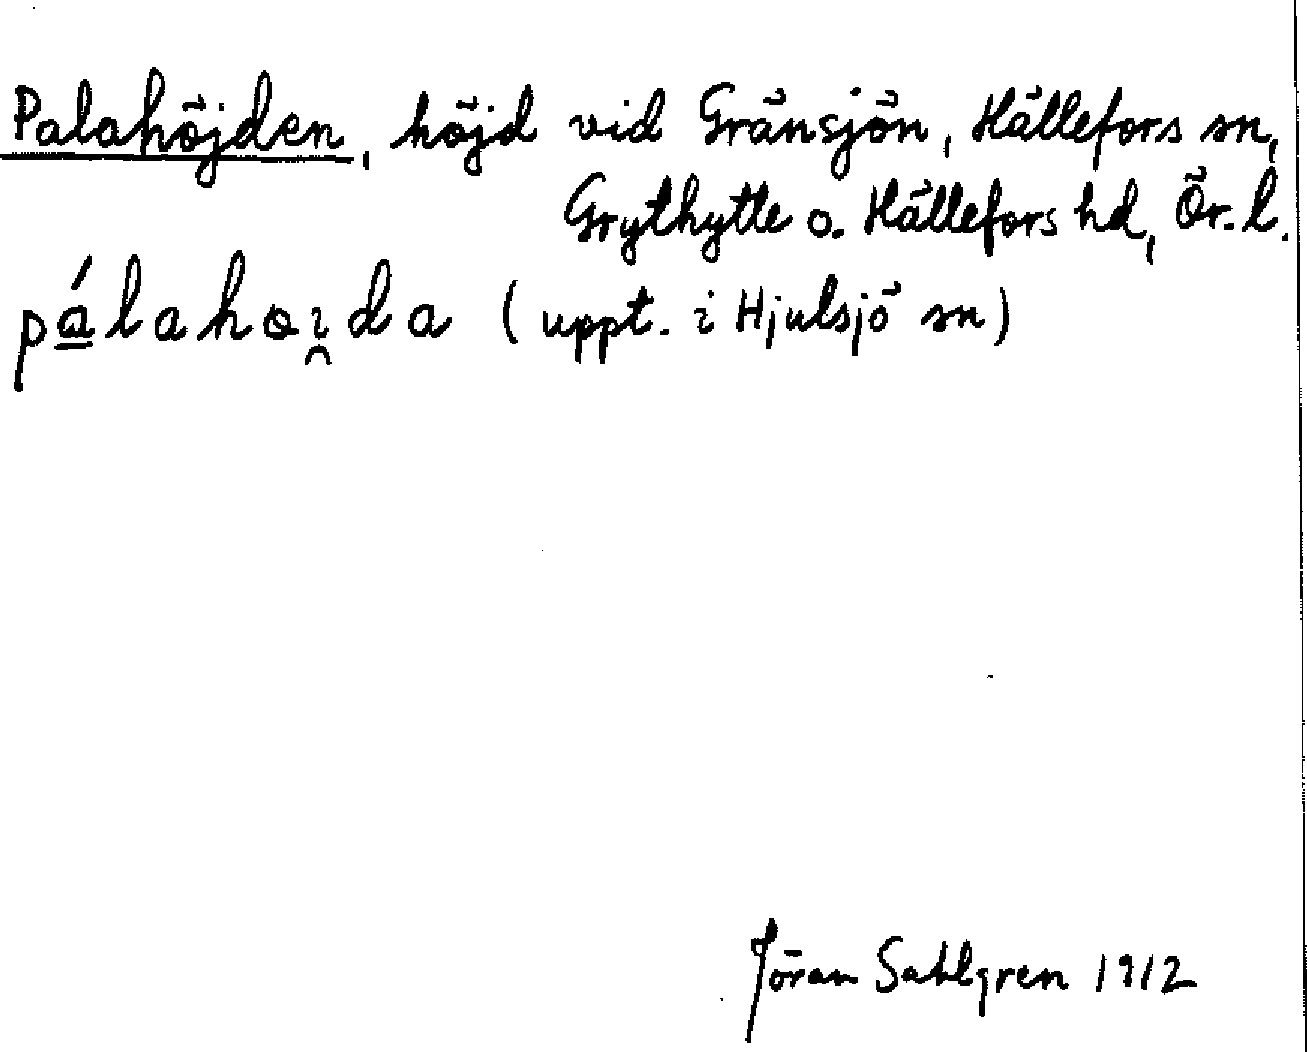 Palahöjden, höjd vid Gränsjön, Hällefors sn,
Grythytte o. Hällefors hd, Ör. l.
pálahoı̯da (uppt. i Hjulsjö sn)
Jöran Sahlgren 1912